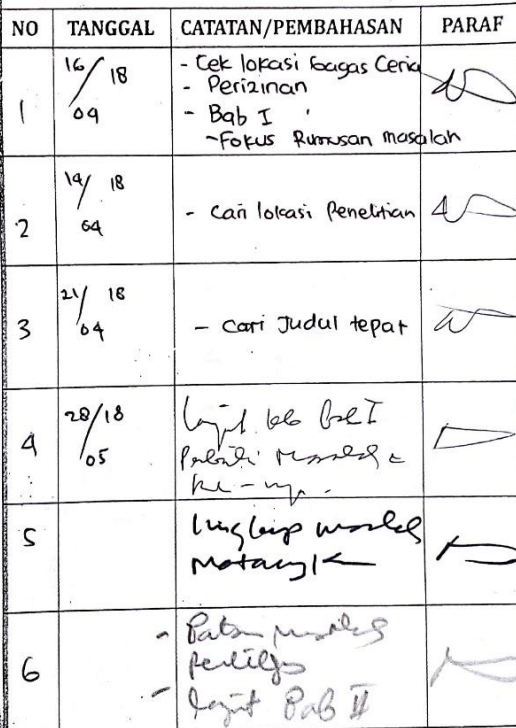 NO TANGGAL CATATAN/PEMBAHASAN PARAF
1 16/18 04 - Cek lokasi Bagas Ceria
- Perizinan
- Bab I
- Fokus Rumusan masalah
2 14/18 04 - Cari lokasi Penelitian
3 21/18 04 - Cari Judul tepat
4 28/18 05 Lanjut bab I
5 Lingkup
6 -
- Lanjut Bab II